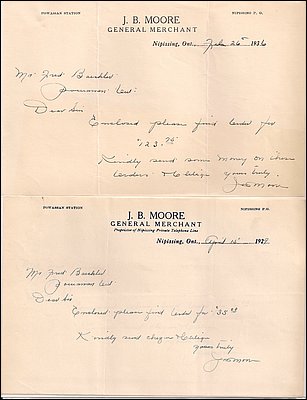 POWASSAN STATION NIPISSING P. O.
J. B. MOORE
GENERAL MERCHANT
Nipissing, Ont., 26th 1936
Mr Fred
Dear Sir
Enclosed please find order for
$123.75
Kindly send some money on these
orders & oblige yours truly.
J B Moore
POWASSAN STATION NIPISSING P.O.
J. B. MOORE
GENERAL MERCHANT
Proprietor of Nipissing Private Telephone Line
Nipissing, Ont., April 15 1929
Mr Fred
Dear Sir
Enclosed please find order for $35
Kindly send cheque & oblige
Yours truly
J B Moore